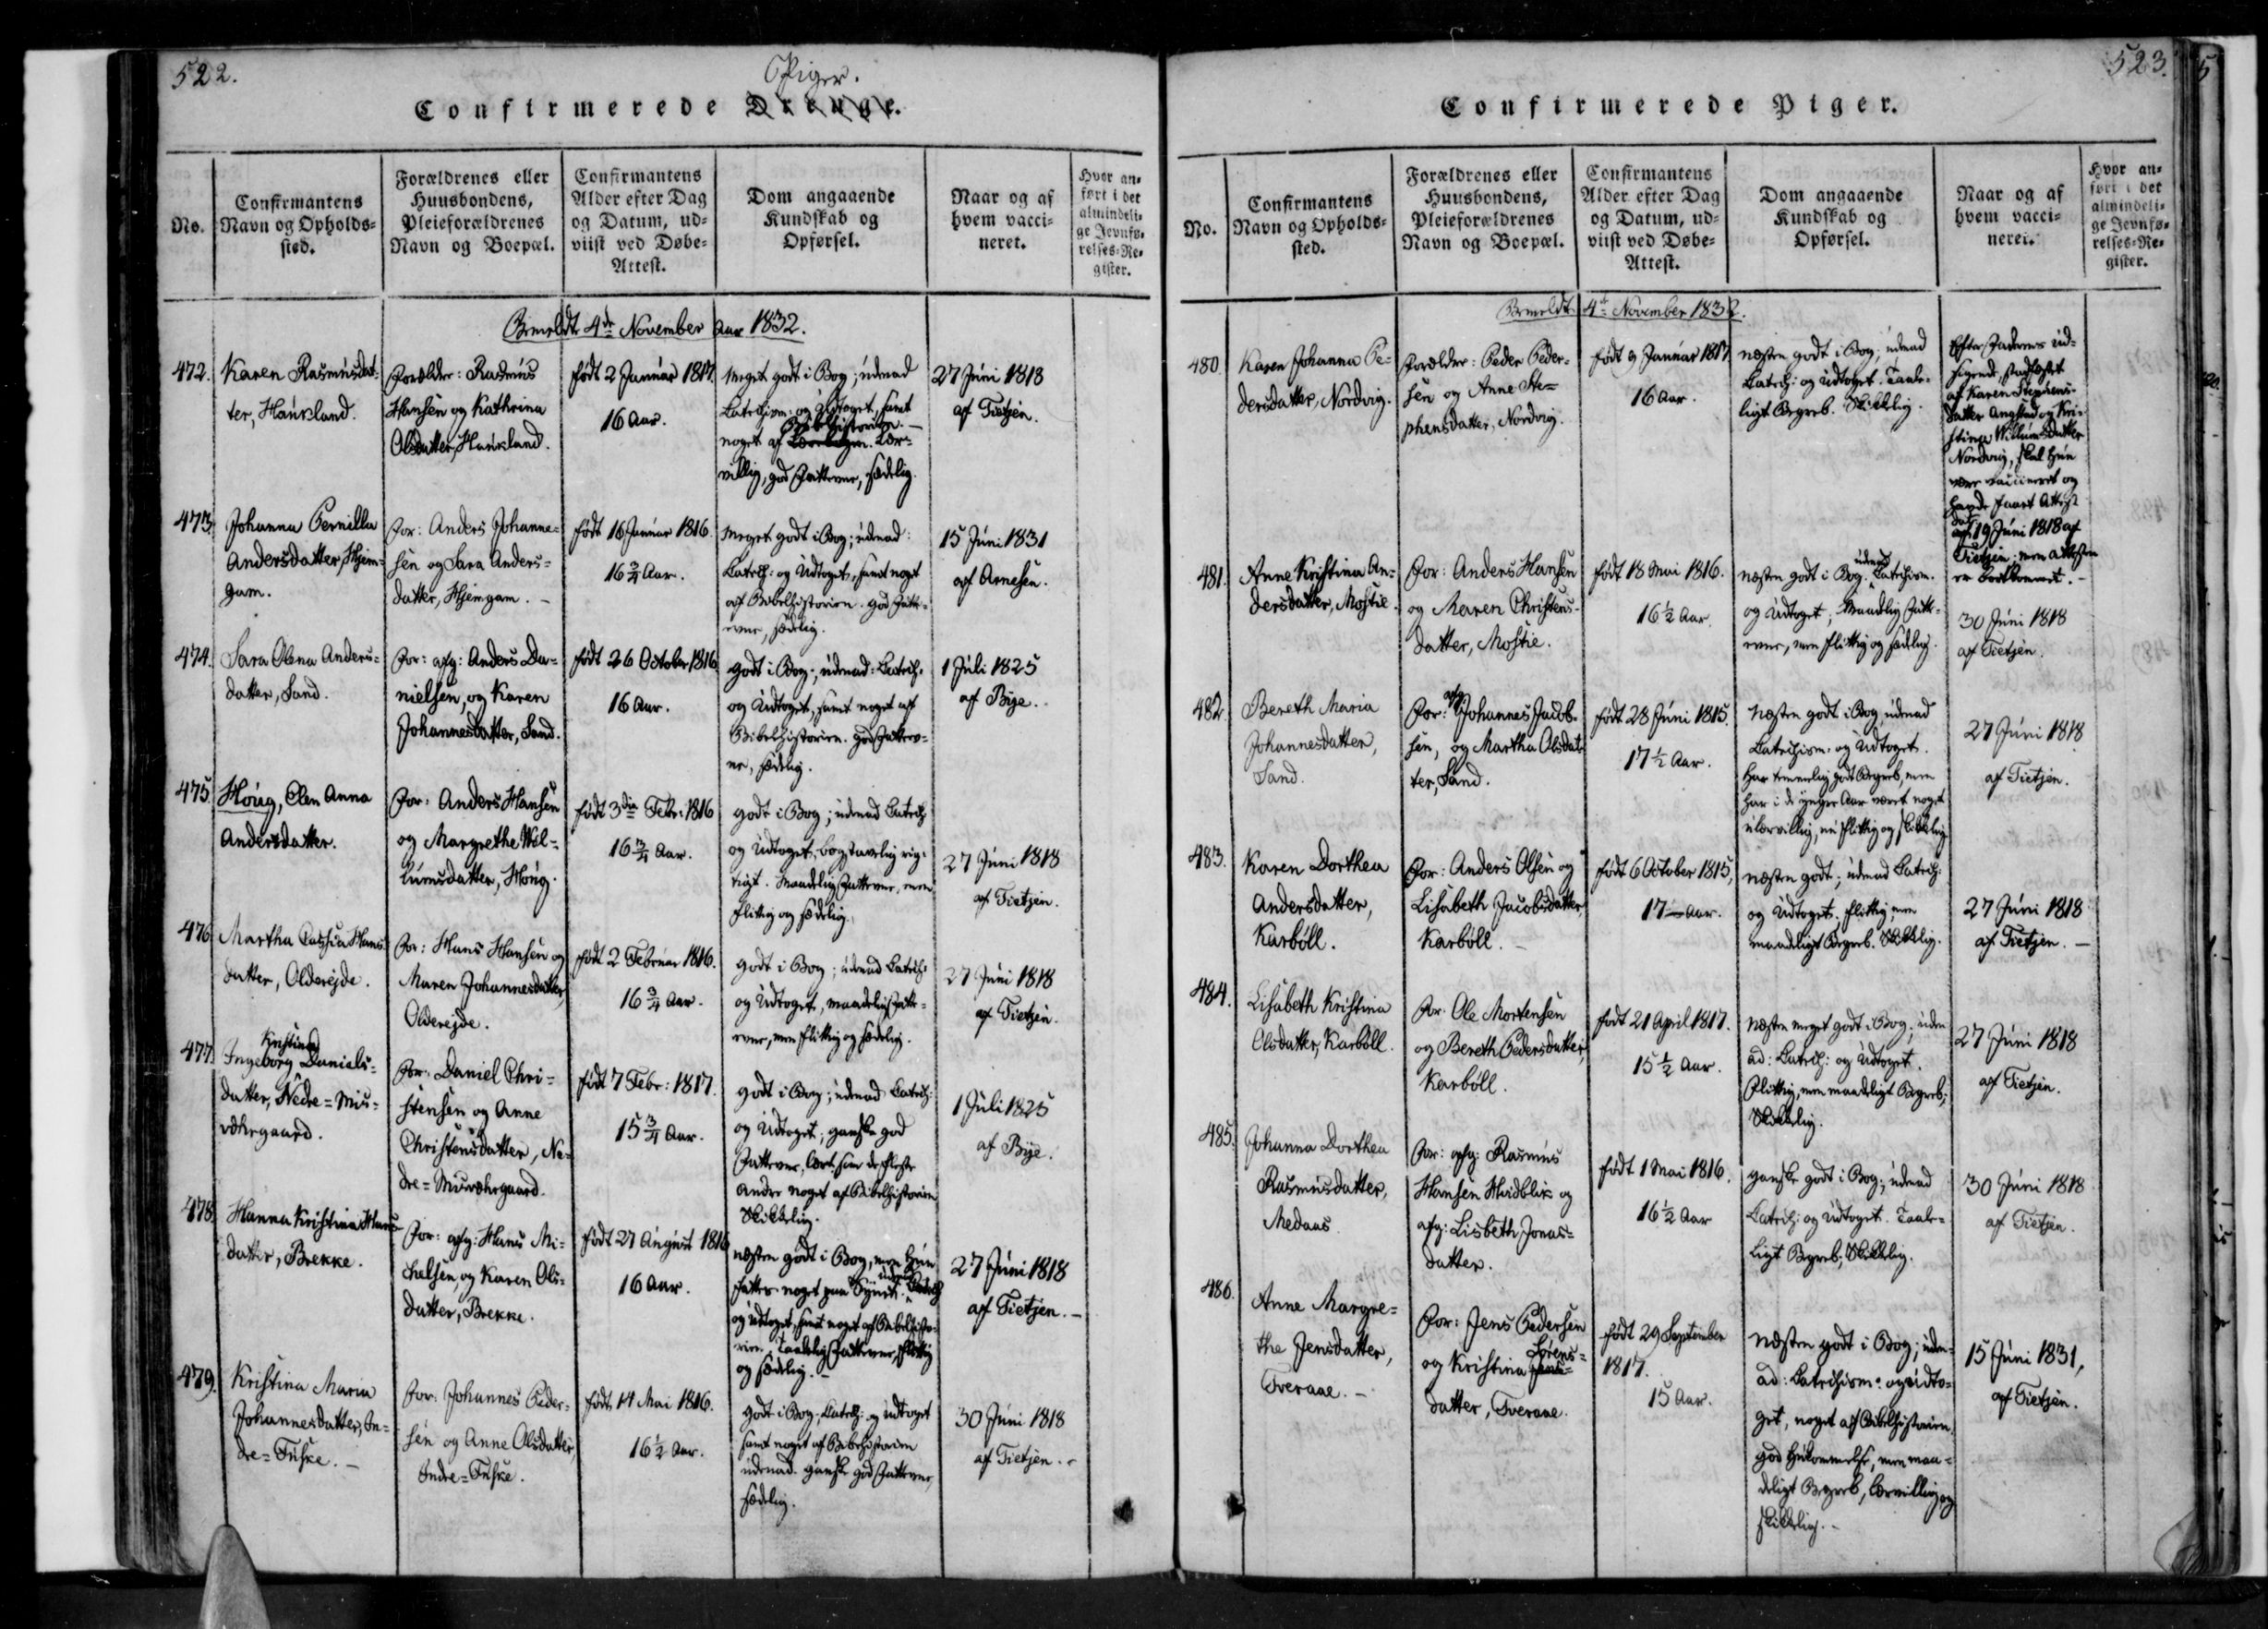 522.
Piger.
Confirmerede Drenge.
No.
Confirmantens
Navn og Opholds-
sted.
Forældrenes eller
Huusbondens,
Pleieforældrenes
Navn og Boepæl.
Confirmantens
Alder efter Dag
og Datum, ud-
viist ved Døbe-
Attest.
Dom angaaende
Kundskab og
Opførsel.
Naar og af
hvem vacci-
neret.
Hvor an-
ført i det
almindeli-
ge Jevnfø-
relses-Re-
gister.
4de November Aar 1832.
472.
Karen Rasmusdat-
ter, Haukland.
Forældre: Rasmus
Hansen og Kathrina
Olsdatter, Haukland.
født 2 Januar 1817.
16 Aar.
Meget godt i Bog; udenad
Catechism: og Udtoget, samt
Bibelhistorien.
noget af Lær-
villig, god Fatteevne, sædelig.
27 Juni 1818
af Tietjen.
473.
Johanna Pernilla
Andersdatter, Hjem-
gam.
For: Anders Johanne-
sen og Sara Anders-
datter, Hjemgam. -
født 16 Januar 1816.
16 3/4 Aar.
Meget godt i Bog; udenad:
Catech: og Udtoget, samt noget
af Bibelhistorien. god Fatte-
evne, sædelig.
15 Juni 1831
af Arnesen.
474.
Sara Olena Anders-
datter, Sand.
For: afg: Anders Da-
nielsen, og Karen
Johannesdatter, Sand.
født 26 October 1816
16 Aar.
godt i Bog; udenad: Catech:
og Udtoget, samt noget af
Bibelhistorien. god Fatteev-
ne, sædelig.
1 Juli 1825
af Bye.
475.
Houg, Elen Anna
Andersdatter.
For: Anders Hansen
og Margrethe Wil-
lumsdatter, Houg.
født 3die Febr: 1816
16 3/4 Aar.
godt i Bog; udenad Catech:
og Udtoget, bogstavelig rig-
tigt. Maadelig Fatteevne, men
flittig og sædelig.
27 Juni 1818
af Tietjen.
476.
Martha Hans-
datter, Oldereide.
For: Hans Hansen og
Maren Johannesdatter,
Oldereide.
født 2 Februar 1816.
16 3/4 Aar.
godt i Bog; udenad Catech:
og Udtoget, maadelig Fatte-
evne, men flittig og sædelig.
27 Juni 1818
af Tietjen.
477.
Kristina
Ingeborg Daniels-
datter, Nedre=Mis-
værhrgaard.
For: Daniel Chri-
stensen og Anne
Christensdatter, Ne-
dre=Misværhrgaard.
født 7 Febr: 1817.
15 3/4 Aar.
godt i Bog; udenad Catech:
og Udtoget; ganske god
Fatteevne, lært som de fleste
Andre noget af Bibelhistorien
Skikkelig.
1 Juli 1825
af Bye.
478.
Hanna Kristina Hans-
datter, Brekke.
For: afg: Hans Mi-
chelsen, og Karen Ols-
datter, Brekke.
født 27 August 1816
16 Aar.
næsten godt i Bog, men hun
fattes noget paa Synet. udenad Catech
og Udtoget, samt noget af Bibelhisto-
rien. Taalelig Fatteevne, flittig
og sædelig. -
27 Juni 1818
af Tietjen. -
479.
Kristina Maria
Johannesdatter, In-
dre=Fuske. -
For: Johannes Peder-
sen og Anne Olsdatter,
Indre=Fuske.
født 14 Mai 1816.
16 1/2 Aar.
godt i Bog, Catech: og Udtoget
samt noget af Bibelhistorien
udenad. ganske god Fatteevne,
sædelig.
30 Juni 1818
af Tietjen. -
523.
Confirmerede Piger.
No.
Confirmantens
Navn og Opholds-
sted.
Forældrenes eller
Huusbondens,
Pleieforældrenes
Navn og Boepæl.
Confirmantens
Alder efter Dag
og Datum, ud-
viist ved Døbe-
Attest.
Dom angaaende
Kundskab og
Opførsel.
Naar og af
hvem vacci-
neret.
Hvor an-
ført i det
almindeli-
ge Jevnfø-
relses-Re-
gister.
4de November 1832.
480.
Karen Johanna Pe-
dersdatter, Nordvig.
Forældre: Peder Peder-
sen og Anne Ste-
phensdatter, Nordvig.
født 9 Januar 1817
16 Aar.
næsten godt i Bog, udenad
Catech: og Udtoget. Taale-
ligt Begreb. Skikkelig.
Efter Faderens ud-
sigende, stadfæstet
af Karen Stephens-
datter Angsted og Kri-
stina Willumsdatter
Nordvig, skal hun
være vaccineret og
havde faaet Attest
dat: 19 Juni 1818 af
Tietjen, men Attesten
er bortkommet. -
481.
Anne Kristina An-
dersdatter, Mostie.
For: Anders Hansen
og Maren Christens-
datter, Mostie.
født 18 Mai 1816.
16 1/2 Aar.
næsten godt i Bog. udenad Catechism.
og Udtoget; Maadelig Fatte-
evne, men flittig og sædelig.
30 Juni 1818
af Tietjen.
482.
Bereth Maria
Johannesdatter,
Sand.
For: afg: Johannes Jacob-
sen, og Martha Olsdat-
ter, Sand.
født 28 Juni 1815.
17 1/2 Aar.
Næsten godt i Bog, udenad
Catechism: og Udtoget.
Har temmelig godt Begreb, men
har i de yngre Aar været noget
ulærvillig, nu flittig og skikkelig
27 Juni 1818
af Tietjen.
483.
Karen Dorthea
Andersdatter,
Karbøll.
For: Anders Olsen og
Lisabeth Jacobsdatter,
Karbøll. -
født 6 October 1815,
17 Aar.
næsten godt; udenad Catech:
og Udtoget. flittig, men
maadeligt Begreb. Skikkelig.
27 Juni 1818
af Tietjen. -
484.
Lisabeth Kristina
Olsdatter, Karbøll.
For: Ole Mortensen
og Bereth Pedersdatter,
Karbøll.
født 21 April 1817.
15 1/2 Aar.
Næsten meget godt i Bog, uden
ad: Catech: og Udtoget.
Flittig, men maadeligt Begreb;
Skikkelig.
27 Juni 1818
af Tietjen.
485.
Johanna Dorthea
Rasmusdatter,
Medaas.
For: afg: Rasmus
Hansen Hvidblik og
afg: Lisbeth Jonas-
datter.
født 1 Mai 1816.
16 1/2 Aar
ganske godt i Bog, udenad
Catech: og Udtoget. Taale-
ligt Begreb; Skikkelig.
30 Juni 1818
af Tietjen.
486.
Anne Margre-
the Jensdatter,
Tveraae. -
For: Jens Pedersen
og Kristina Sørens-
datter, Tveraae.
født 29 September
1817.
15 Aar.
Næsten godt i Bog; uden-
ad: Catechism: og Udto-
get, noget af Bibelhistorien.
god Hukommelse, men maa-
deligt Begreb, lærvillig og
skikkelig. -
15 Juni 1831,
af Tietjen.